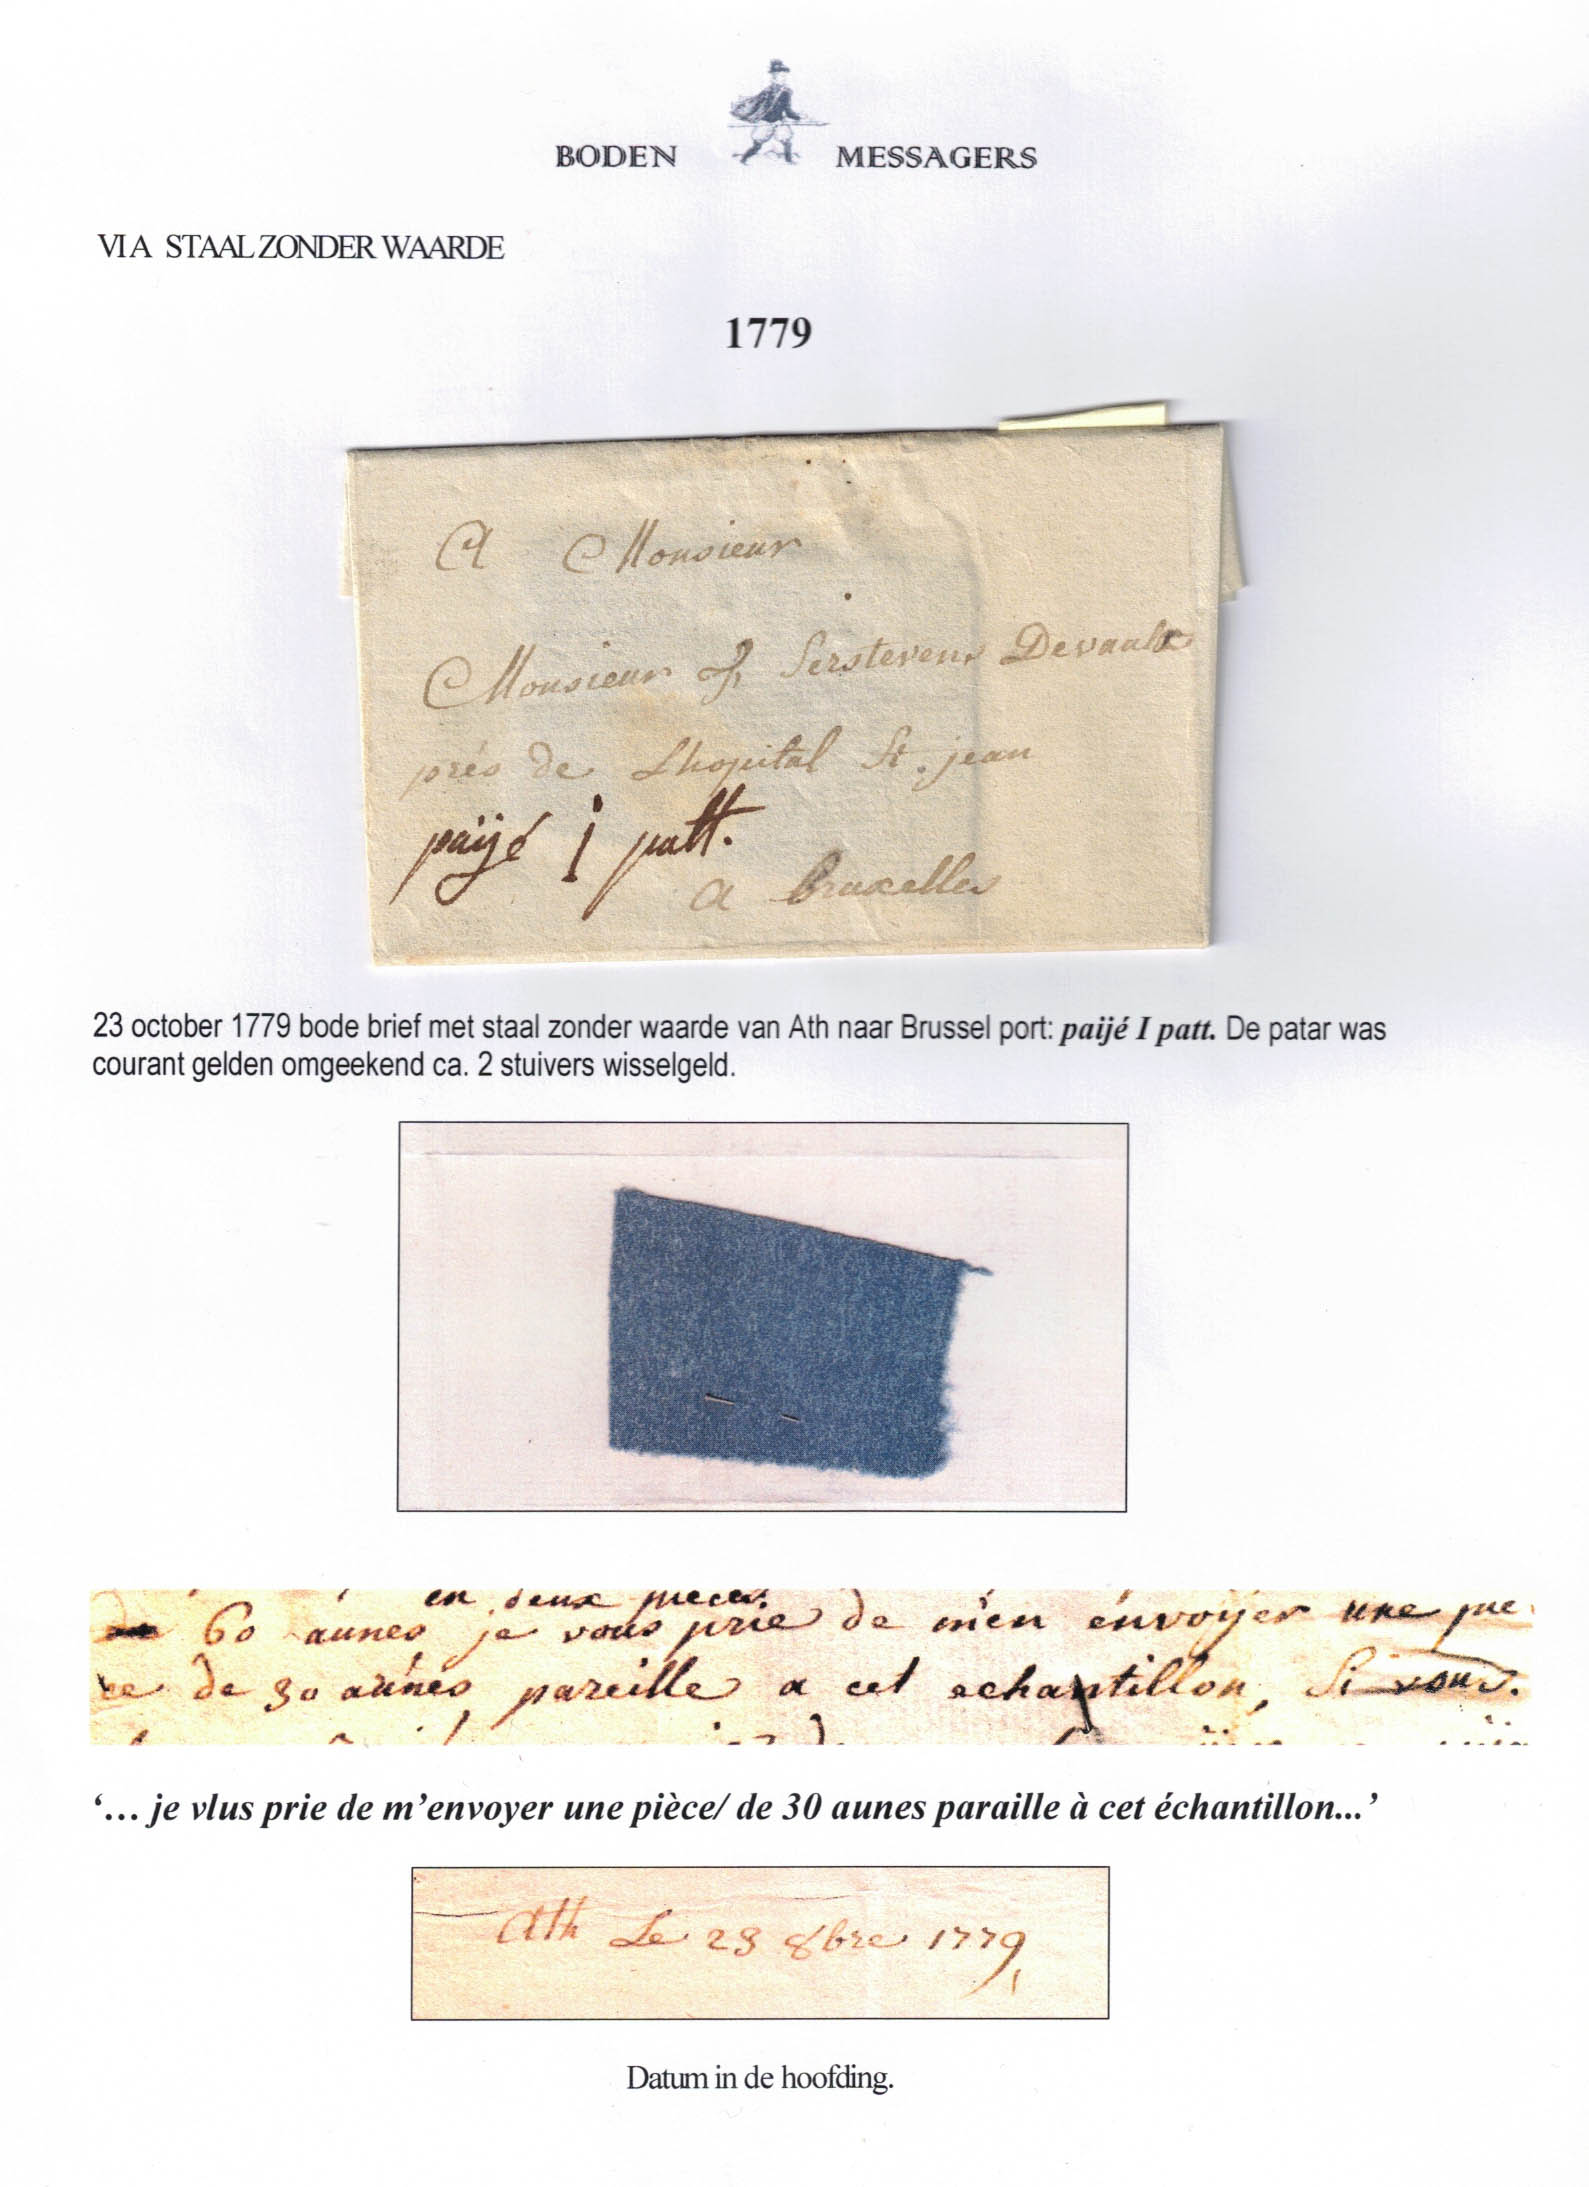 BODEN MESSAGERS
VI A STAAL ZONDER WAARDE
1779
A Monsieur
Monsieur Serstevens Devaulx
prés de Lhopital St. jean
paijé 1 patt.
a bruxelles
23 october 1779 bode brief met staal zonder waarde van Ath naar Brussel port: paijé I patt. De patar was
courant gelden omgeekend ca. 2 stuivers wisselgeld.
en deux pieces.
60 aunes je vous prie de m'en envoyer une pie
ce de 30 aunes pareille a cet echantillon, Si vous.
‘… je vlus prie de m’envoyer une pièce/ de 30 aunes paraille à cet échantillon...’
Ath Le 23 8bre 1779
Datum in de hoofding.